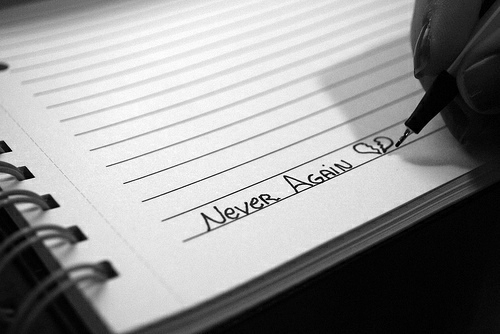 Never Again